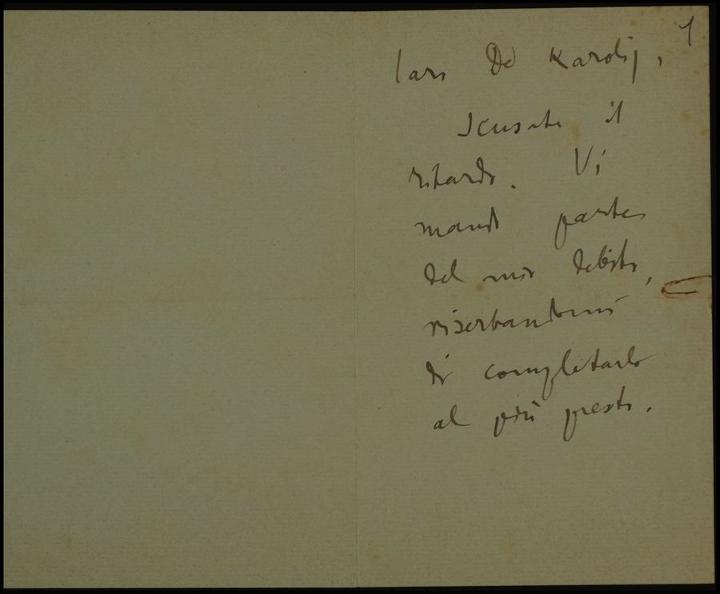 1
Caro De Karolis,
Scusate il
ritardo. Vi
mando parte
del mio debito,
riserbandomi
di completarlo
al più presto.